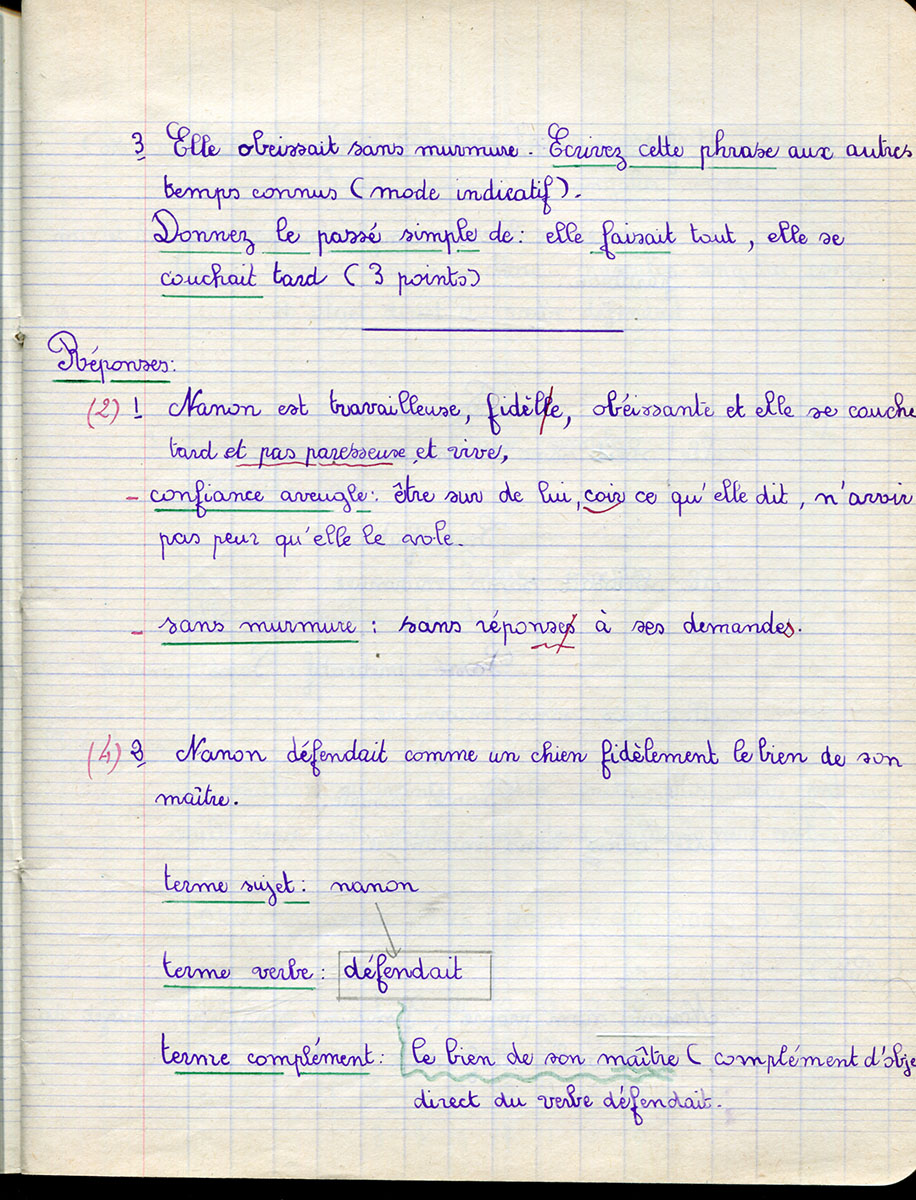 3 Elle obeissait sans murmure. Ecrivez cette phrase aux autres
temps connus (mode indicatif).
Donnez le passé simple de: elle faisait tout, elle se
couchait tard (3 points)
Réponses:
(2) 1 Nanon est travailleuse, fidèlle, obéissante et elle se couche
tard et pas paresseuse et vive,
- confiance aveugle: être sur de lui, coir ce qu'elle dit, n'avoir
pas peur qu'elle le vole.
- sans murmure: sans réponses à ses demandes.
(4) 2 Nanon défendait comme un chien fidèlement le bien de son
maître.
terme sujet: nanon
terme verbe: défendait
terme complément: le bien de son maître (complément d'obje
direct du verbe défendait.